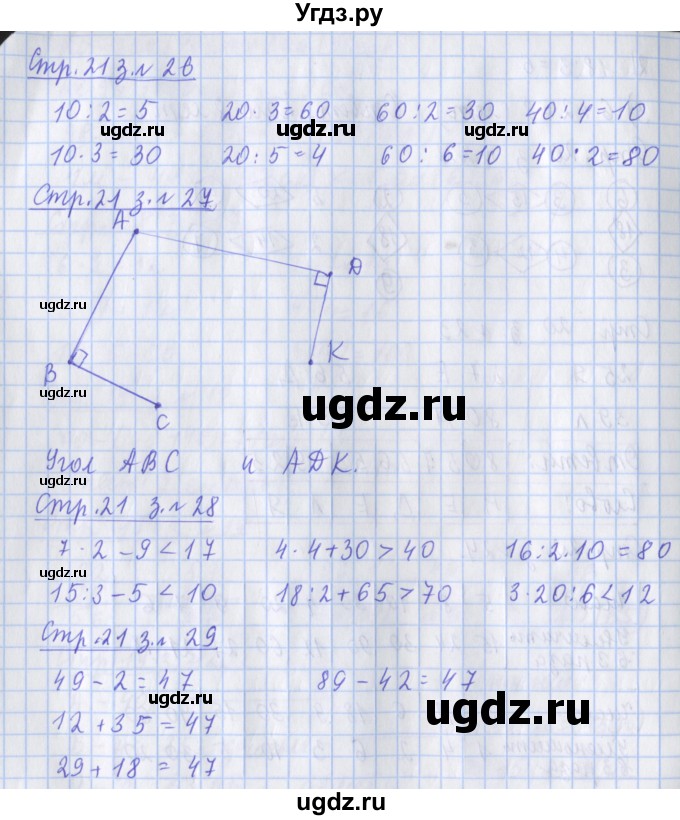 Угдз.ру
Стр. 21 з. № 26
10 : 2 = 5 20 · 3 = 60 60 : 2 = 30 40 : 4 = 10
ugdz.ru ugdz.ru ugdz.ru
10 · 3 = 30 20 : 5 = 4 60 : 6 = 10 40 · 2 = 80
Стр. 21 з. № 27
ugdz.ru
A
D
ugdz.ru
B
K
C
ugdz.ru
ugdz.ru
Угол ABC и АДК.
Стр. 21 з. № 28
7 · 2 - 9 < 17 4 · 4 + 30 > 40 16 : 2 · 10 = 80
ugdz.ru
15 : 3 - 5 < 10 18 : 2 + 65 > 70 3 · 20 : 6 < 12
ugdz.ru ugdz.ru
Стр. 21 з. № 29
49 - 2 = 47 89 - 42 = 47
ugdz.ru
12 + 35 = 47
ugdz.ru
29 + 18 = 47
ugdz.ru